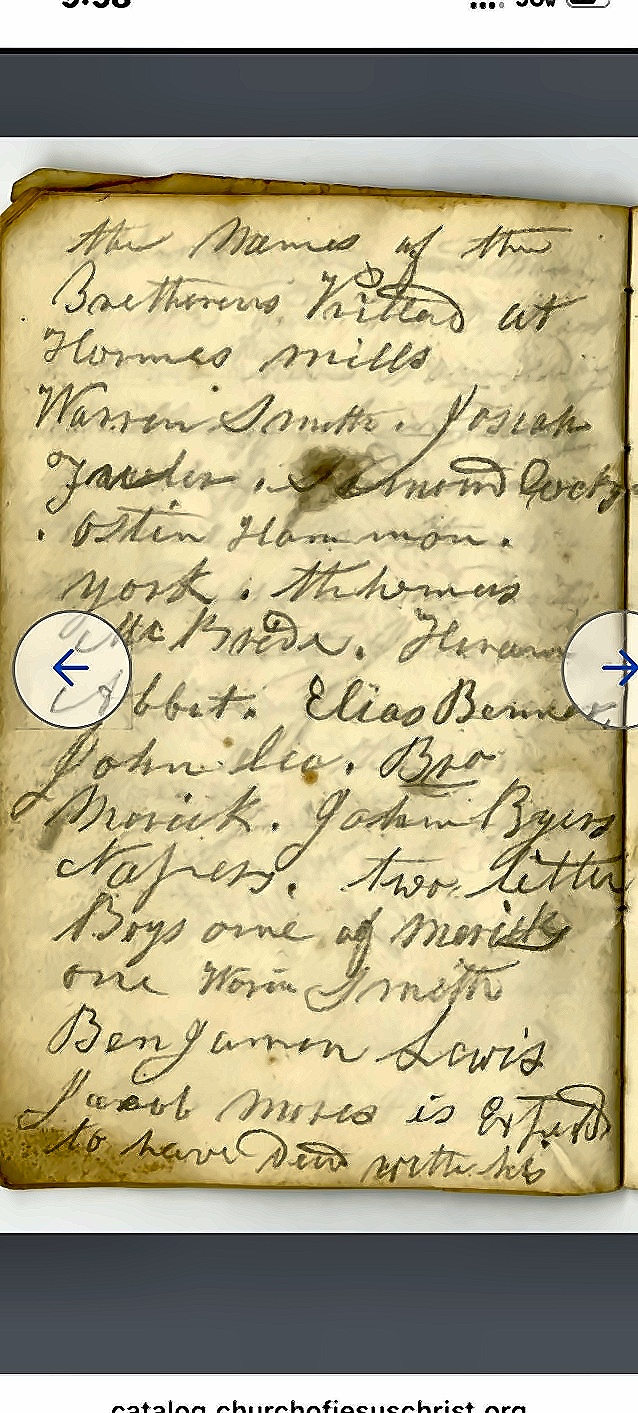 9:58
the Names of the
Bretherens Killed at
Hormes mills
Warren Smith. Josiah
Fuller. Simond
. ostin Hammon.
york. thhomas
Mc Bride. Hiram
Abbet. Elias Benner
John Leo. Bro
Merick. John Byers
Napers. two little
Boys one of Merick
one Worin Smith
Benjamin Lewis
Jacob Mires is
to have Died with his
catalog.churchofjesuschrist.org